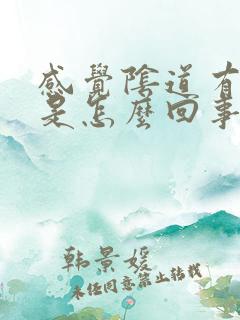 感覺陰道有
是怎麼回事
韩景媛
未经同意禁止转载